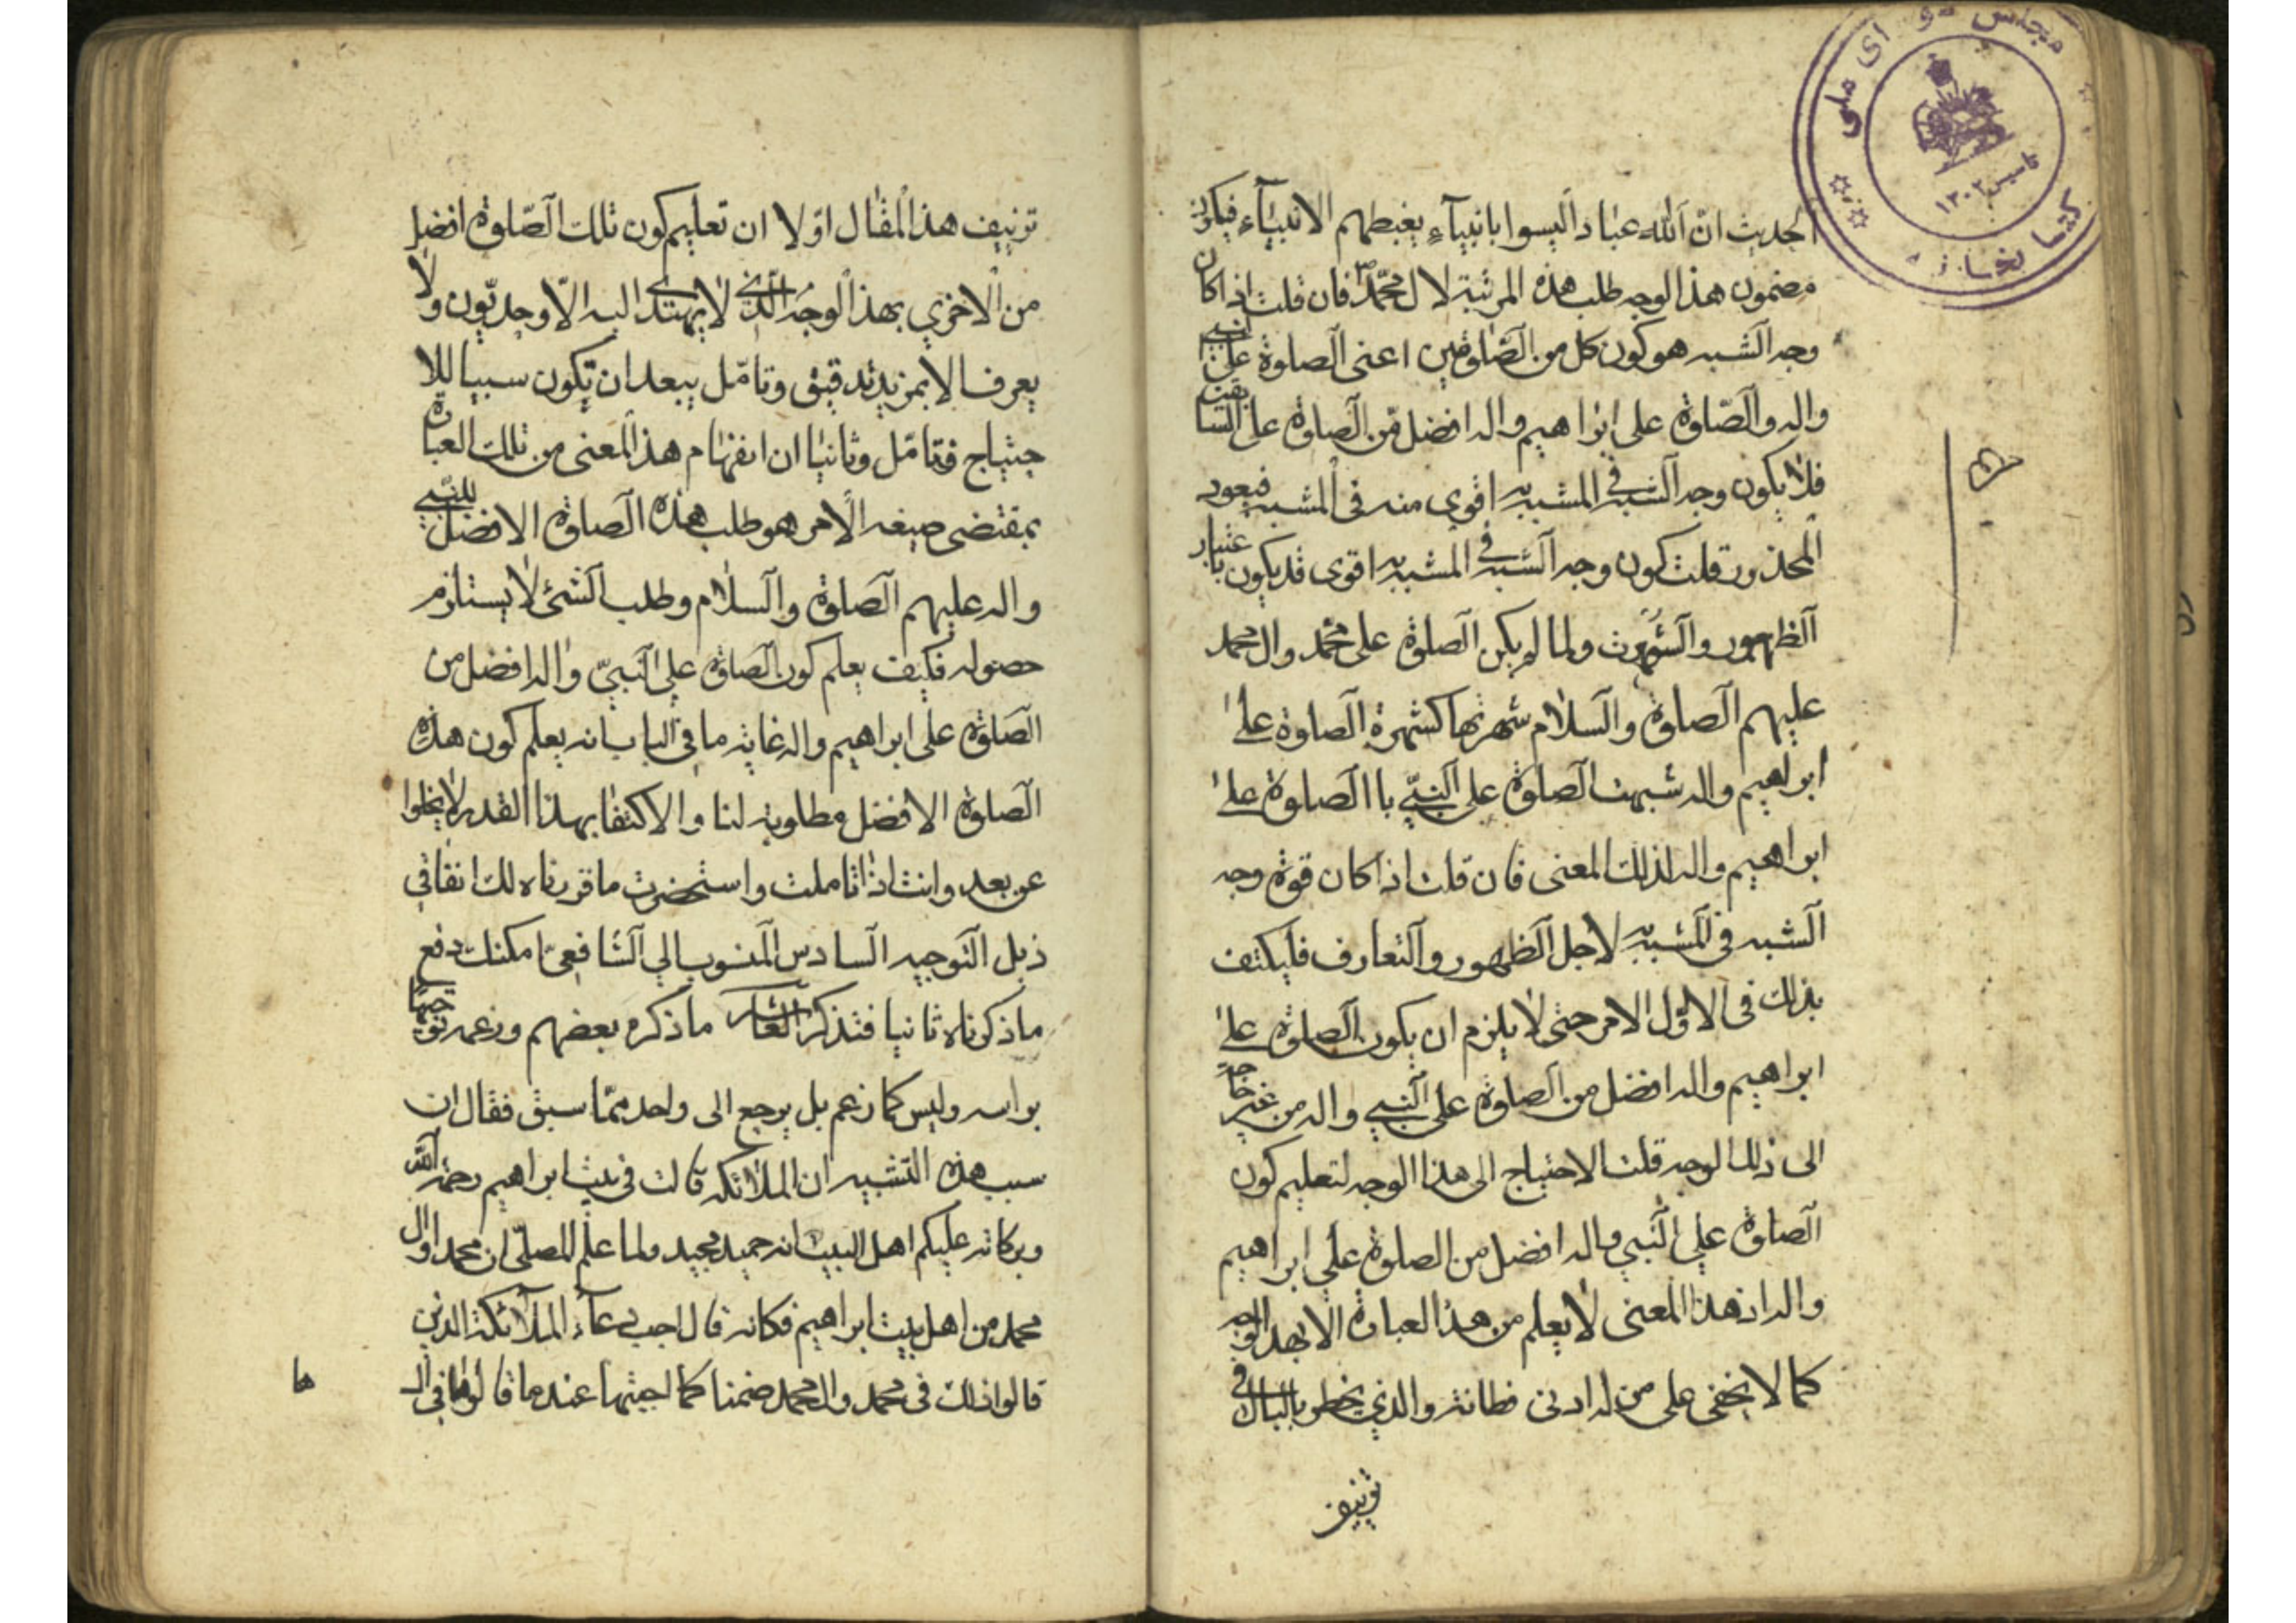 الحديث انّ لله عبادا ليسوا بانبيآء يغبطهم الانبيآء فيكون
مضمون هذا الوجه طلب هذه المرتبة لال محمّد ص فان قلت اذا كان
وجه الشبه هو كون كل من الصّلوتين اعنى الصلوة على النبي
واله والصّلوة على ابراهيم واله افضل من الصلوة على السابقين
فلا يكون وجه الشبه في المشبه به اقوى منه فى المشبه فيعود
المحذور قلت كون وجه الشبه في المشبه به اقوى قد يكون باعتبار
الظهور والشهرت ولما لم يكن الصلوة على محمّد وال محمد
عليهم الصلوة والسلام شهرتها كشهرة الصلوة على
ابراهيم واله شبهت الصلوة على النبيّ با الصلوة على
ابراهيم واله لذلك المعنى فان قلت اذا كان قوة وجه
الشبه فى المشبه به لاجل الظهور والتعارف فليكتف
بذلك فى الاوّل الامر حتى لا يلزم ان يكون الصلوة على
ابراهيم واله افضل من الصلوة على النبي واله من غير حاجة
الى ذلك الوجه قلت الاحتياج الى هذا الوجه لتعليم كون
الصلوة على النبي واله افضل من الصلوة على ابراهيم
واله اذ هذا المعنى لا يعلم من هذا العبارة الا بهذا الوجه
كما لا يخفى على من له ادنى فطانة والذي يخطر بالبال في
تزييف
تزييف هذا المقال اوّلا ان تعليم كون تلك الصّلوة افضل
من الاخري بهذا الوجه الذي لا يهتدى اليه الّا وحديّون ولا
يعرف الا بمزيد تدقيق وتامّل يبعد ان تكون سببا للا
حتياج فتامّل وثانيا ان انفهام هذا المعنى من تلك العبارة
بمقتضى صيغه الامر هو طلب هذه الصلوة الافضل للنبي
واله عليهم الصلوة والسلام وطلب الشئ لا يستلزم
حصوله فكيف يعلم كون الصلوة على النبيّ واله افضل من
الصّلوة على ابراهيم واله غاية ما في الباب انه يعلم كون هذه
الصلوة الافضل مطلوبة لنا والاكتفا بهذا القدر لا يخلوا
عن بعد وانت اذا تاملت واستحضرت ما قرناه لك انفا في
ذيل التوجيه السادس المنسوب الي الشافعىّ امكنك دفع
ما ذكرناه ثانيا فتذكر العاشر ما ذكره بعضهم وزعمه توجيها
براسه وليس كما زعم بل يرجع الى واحد ممّا سبق فقال ان
سبب هذه التشبيه ان الملائكه قالت فى بيت ابراهيم رحمة الله
وبركاته عليكم اهل البيت انه حميد مجيد ولما علم المصلّى ان محمد او ال
محمد من اهل بيت ابراهيم فكانه قال اجب دعاء الملائكة الذين
قالوا ذلك فى محمد وال محمد ضمنا كما اجبتها عند ما قالوها في ال
ها
كتابخانه مجلس شورای ملی
تاسیس ۱۳۰۲